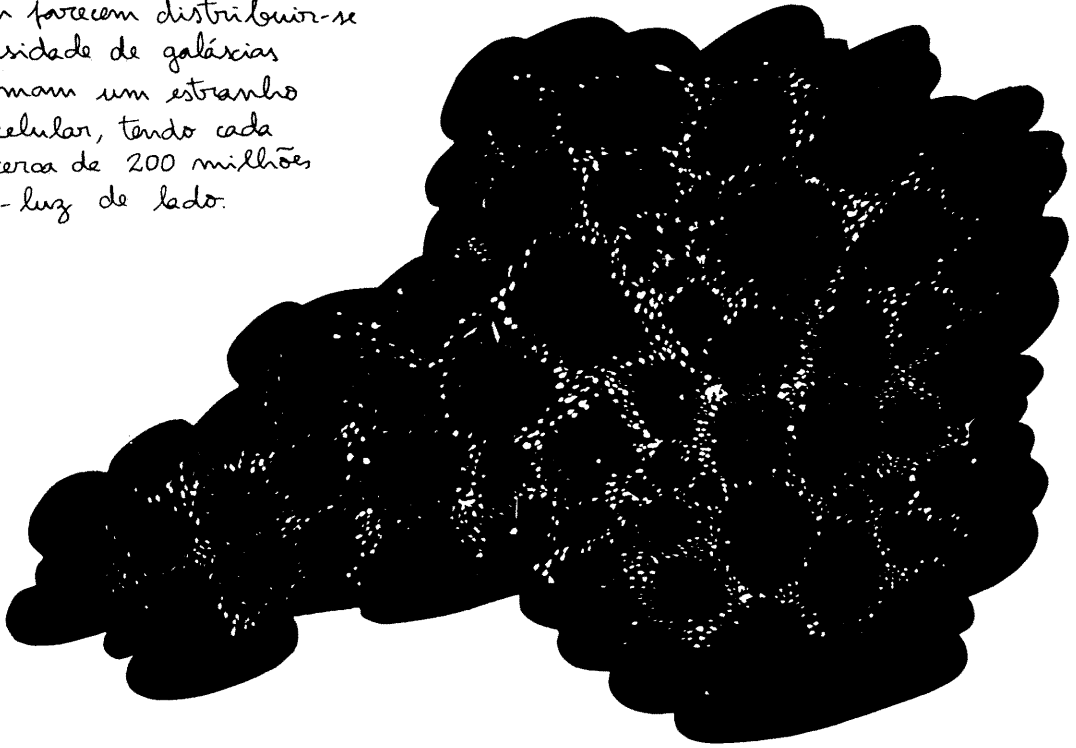 parecem distribuir-se
de galáxias
um estranho
celular, tendo cada
de 200 milhões
-luz de lado.